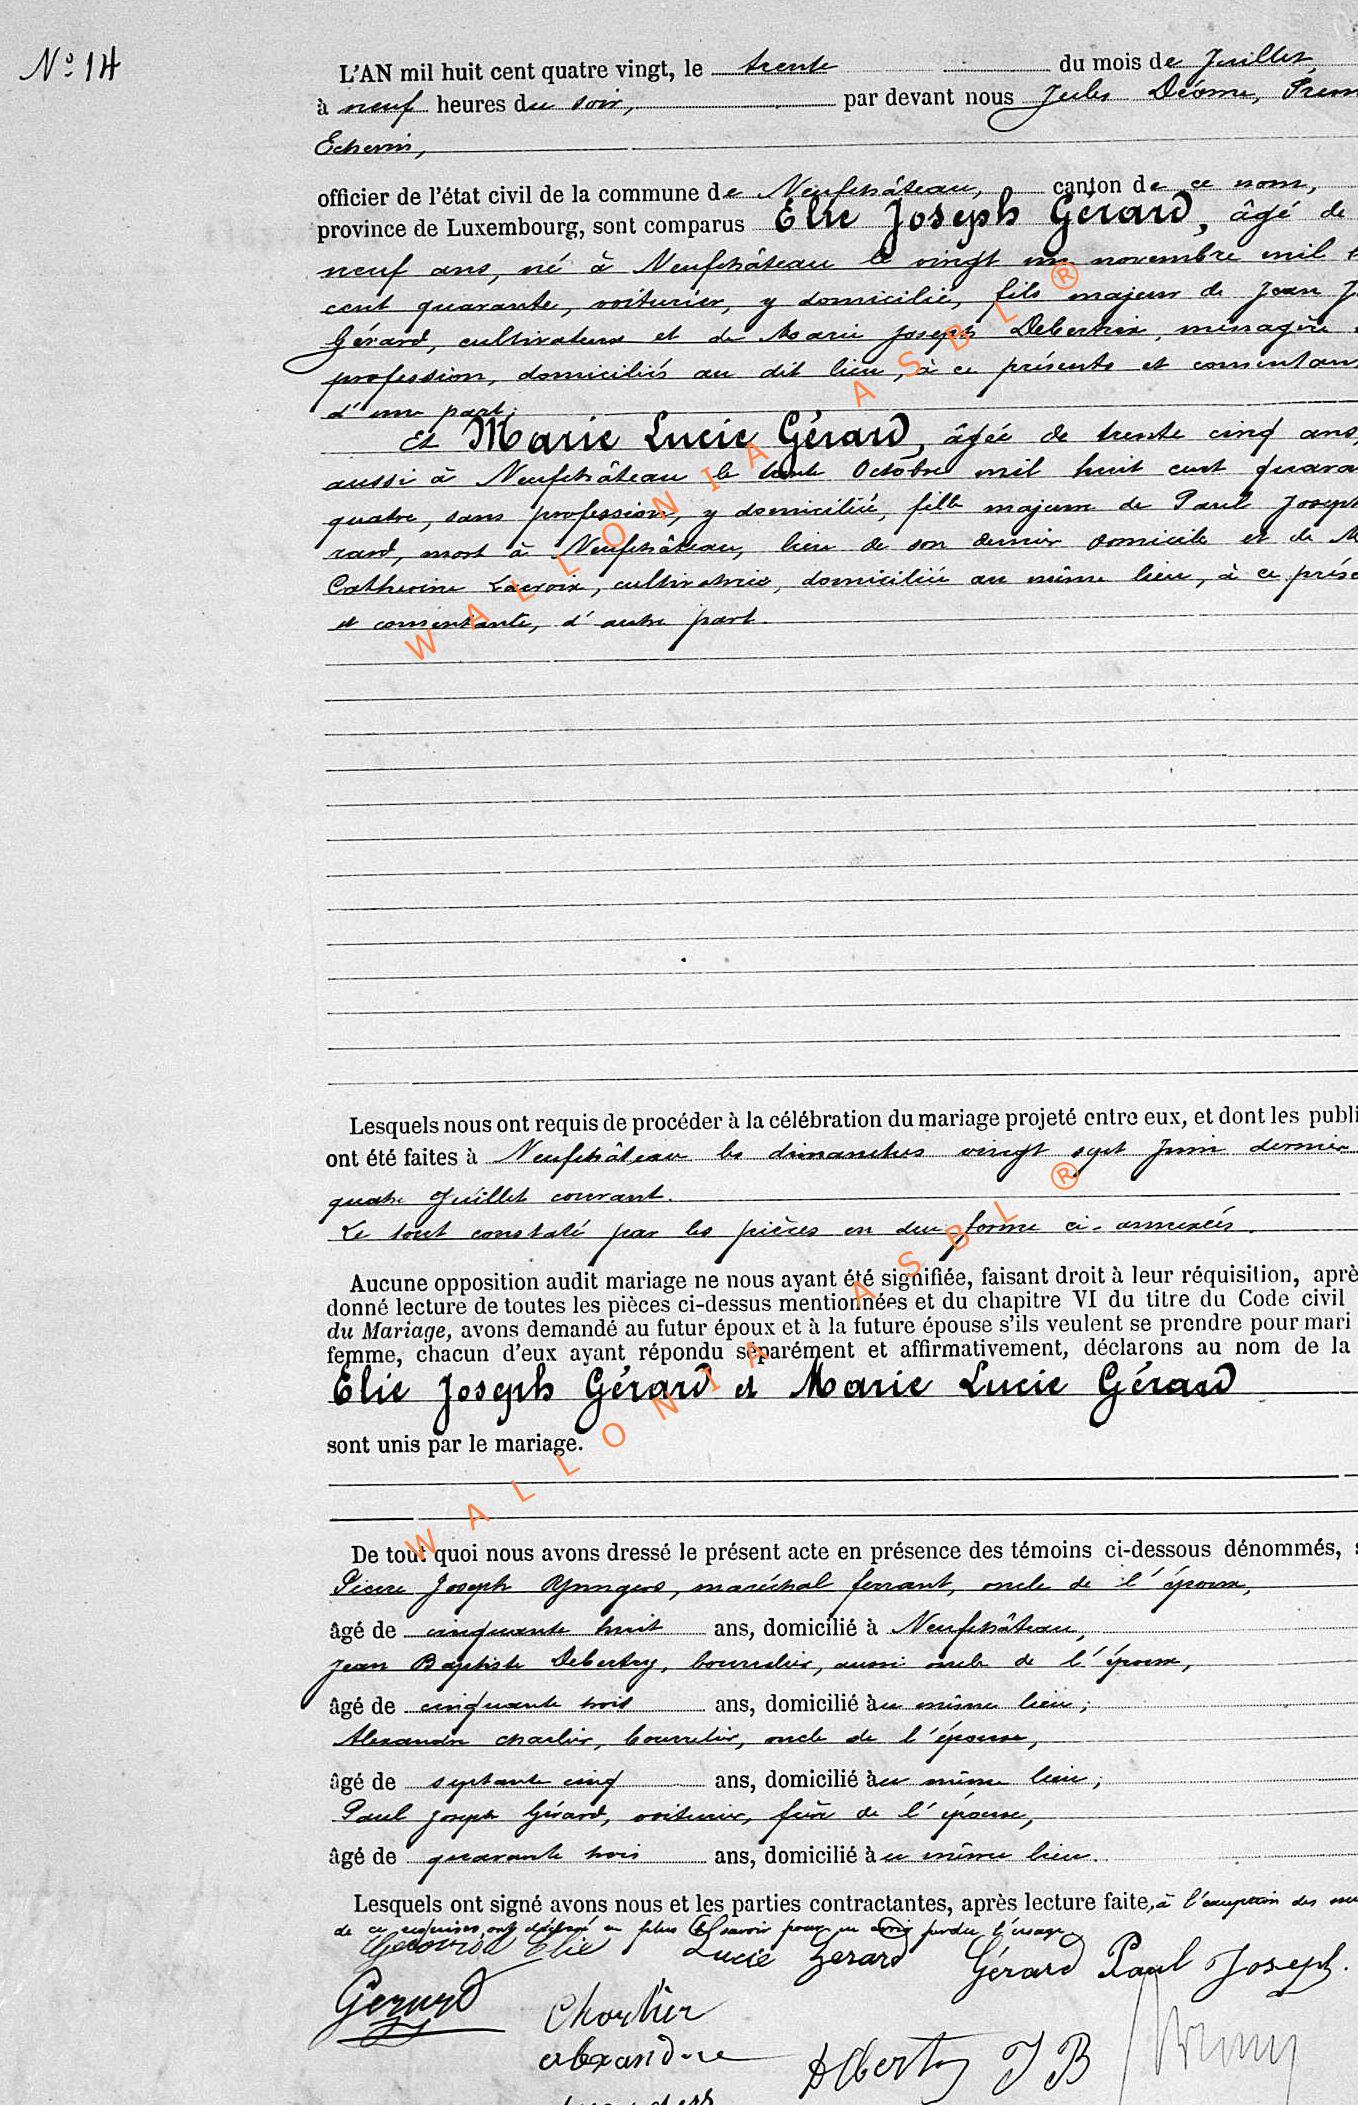 Nº 14
L'AN mil huit cent quatre vingt, le trente du mois de Juillet,
à neuf heures du soir, par devant nous Jules Déome, Prem
Echevin,
officier de l'état civil de la commune de Neufchâteau, canton de ce nom,
province de Luxembourg, sont comparus Elie Joseph Gérard, âgé de
neuf ans, né à Neufchâteau le vingt un novembre mil
cent quarante, voiturier, y domicilié, fils majeur de Jean J
Gérard, cultivateur et de Marie Joseph ménagère
profession, domiciliés au dit lieu, à ce présents et consentan
d'une part;
et Marie Lucie Gérard, âgée de trente cinq ans,
aussi à Neufchâteau le trente Octobre mil huit cent quara
quatre, sans profession, y domiciliée, fille majeure de Paul Joseph
rard, mort à Neufchâteau, lieu de son dernier domicile et de M
Catherine Lacroix, cultivatrice, domiciliée au même lieu, à ce prése
et consentante, d'autre part.
Lesquels nous ont requis de procéder à la célébration du mariage projeté entre eux, et dont les publi
ont été faites à Neufchâteau les dimanches vingt sept Juin dernier
quatre Juillet courant.
Le tout constaté par les pièces en due forme ci-annexées.
Aucune opposition audit mariage ne nous ayant été signifiée, faisant droit à leur réquisition, aprè
donné lecture de toutes les pièces ci-dessus mentionnées et du chapitre VI du titre du Code civil
du Mariage, avons demandé au futur époux et à la future épouse s'ils veulent se prendre pour mari
femme, chacun d'eux ayant répondu séparément et affirmativement, déclarons au nom de la
Elie Joseph Gérard et Marie Lucie Gérard
sont unis par le mariage.
De tout quoi nous avons dressé le présent acte en présence des témoins ci-dessous dénommés, s
Pierre Joseph maréchal ferrant, oncle de l'époux,
âgé de cinquante huit ans, domicilié à Neufchâteau,
Jean Baptiste Debertry, bourrelier, aussi oncle de l'époux,
âgé de cinquante trois ans, domicilié au même lieu;
Alexandre Charlier, bourrelier, oncle de l'épouse,
âgé de septante cinq ans, domicilié au même lieu;
Paul Joseph Gérard, voiturier, frère de l'épouse,
âgé de quarante trois ans, domicilié au même lieu.
Lesquels ont signé avons nous et les parties contractantes, après lecture faite, à l'exception des
de ce requises ont déclaré ne plus savoir pour en avoir perdu l'usage
Gérard Elie Lucie Gerard Gérard Paul Joseph.
Gerard Charlier
alexandre DBertry J B
WALLONIA ASBL ®
WALLONIA ASBL ®